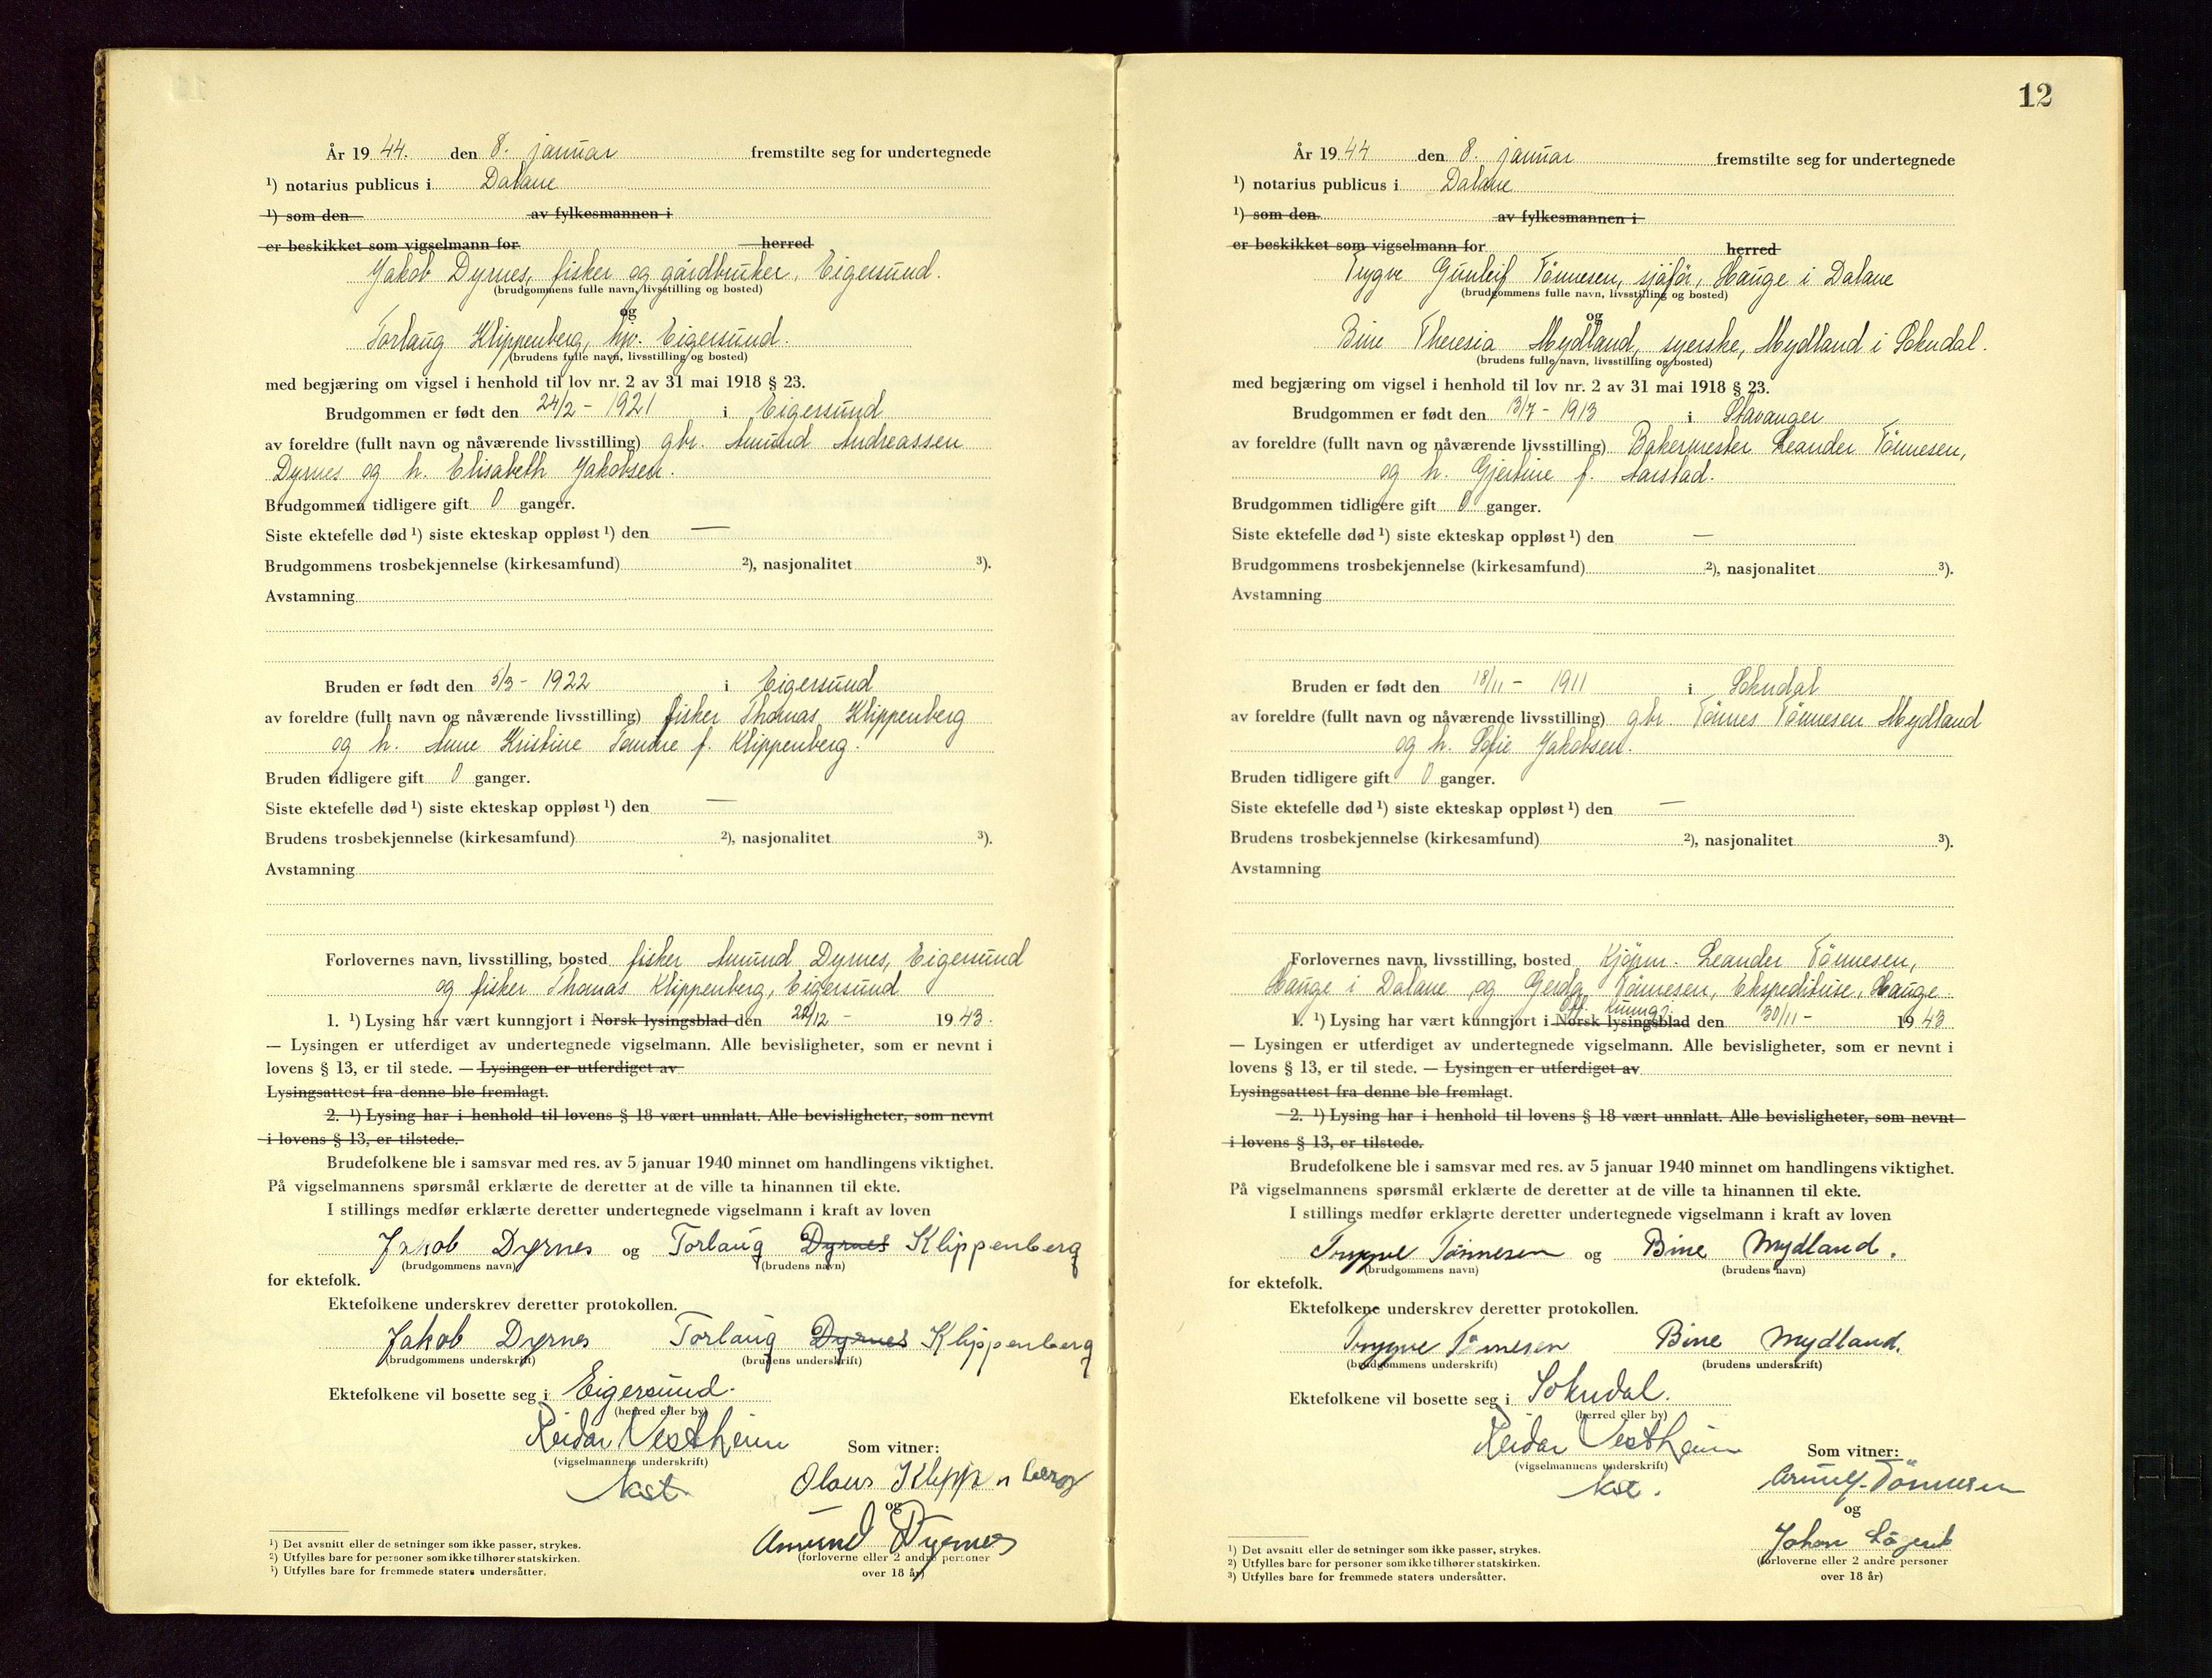 År 19 44. den 8. januar fremstilte seg for undertegnede
¹) notarius publicus i Dalane
¹) som den av fylkesmannen i
er beskikket som vigselmann for herred
Jakob Dyrnes, fisker og gårdbruker, Eigersund.
(brudgommens fulle navn, livsstilling og bosted)
og
Torlaug Klippenberg, hjv. Eigersund.
(brudens fulle navn, livsstilling og bosted)
med begjæring om vigsel i henhold til lov nr. 2 av 31 mai 1918 § 23.
Brudgommen er født den 24/2 - 1921 i Eigersund
av foreldre (fullt navn og nåværende livsstilling) gbr. Amund Andreassen
Dyrnes og h. Elisabeth Jakobsen.
Brudgommen tidligere gift 0 ganger.
Siste ektefelle død ¹) siste ekteskap oppløst ¹) den —
Brudgommens trosbekjennelse (kirkesamfund) ²), nasjonalitet ³).
Avstamning
Bruden er født den 5/3 - 1922 i Eigersund
av foreldre (fullt navn og nåværende livsstilling) fisker Thomas Klippenberg
og h. Anne Kristine Tomine f. Klippenberg.
Bruden tidligere gift 0 ganger.
Siste ektefelle død ¹) siste ekteskap oppløst ¹) den —
Brudens trosbekjennelse (kirkesamfund) ²), nasjonalitet ³).
Avstamning
Forlovernes navn, livsstilling, bosted fisker Amund Dyrnes, Eigersund
og fisker Thomas Klippenberg, Eigersund
1. ¹) Lysing har vært kunngjort i Norsk lysingsblad den 22/12 - 19 43.
— Lysingen er utferdiget av undertegnede vigselmann. Alle bevisligheter, som er nevnt i
lovens § 13, er til stede. — Lysingen er utferdiget av
Lysingsattest fra denne ble fremlagt.
2. ¹) Lysing har i henhold til lovens § 18 vært unnlatt. Alle bevisligheter, som nevnt
i lovens § 13, er tilstede.
Brudefolkene ble i samsvar med res. av 5 januar 1940 minnet om handlingens viktighet.
På vigselmannens spørsmål erklærte de deretter at de ville ta hinannen til ekte.
I stillings medfør erklærte deretter undertegnede vigselmann i kraft av loven
Jakob Dyrnes og Torlaug Dyrnes Klippenberg
(brudgommens navn) (brudens navn)
for ektefolk.
Ektefolkene underskrev deretter protokollen.
Jakob Dyrnes Torlaug Dyrnes Klippenberg
(brudgommens underskrift) (brudens underskrift)
Ektefolkene vil bosette seg i Eigersund.
(herred eller by)
Reidar Vestheim Som vitner:
(vigselmannens underskrift)
kst. Olaus Klippenberg
og
Amund Dyrnes
(forloverne eller 2 andre personer
over 18 år)
¹) Det avsnitt eller de setninger som ikke passer, strykes.
²) Utfylles bare for personer som ikke tilhører statskirken.
³) Utfylles bare for fremmede staters undersåtter.
12
År 19 44 den 8. januar fremstilte seg for undertegnede
¹) notarius publicus i Dalane
¹) som den av fylkesmannen i
er beskikket som vigselmann for herred
Trygve Gunleif Tönnesen, sjåför, Hauge i Dalane
(brudgommens fulle navn, livsstilling og bosted)
og
Bine Theresia Mydland, syerske, Mydland i Sokndal.
(brudens fulle navn, livsstilling og bosted)
med begjæring om vigsel i henhold til lov nr. 2 av 31 mai 1918 § 23.
Brudgommen er født den 13/7 - 1913 i Stavanger
av foreldre (fullt navn og nåværende livsstilling) Bakermester Leander Tönnesen,
og h. Gjertine f. Aarstad.
Brudgommen tidligere gift 0 ganger.
Siste ektefelle død ¹) siste ekteskap oppløst ¹) den —
Brudgommens trosbekjennelse (kirkesamfund) ²), nasjonalitet ³).
Avstamning
Bruden er født den 18/11 - 1911 i Sokndal
av foreldre (fullt navn og nåværende livsstilling) gbr. Tönnes Tönnesen Mydland
og h. Sofie Jakobsen.
Bruden tidligere gift 0 ganger.
Siste ektefelle død ¹) siste ekteskap oppløst ¹) den —
Brudens trosbekjennelse (kirkesamfund) ²), nasjonalitet ³).
Avstamning
Forlovernes navn, livsstilling, bosted Kjöpm. Leander Tönnesen,
Hauge i Dalane og Gerda Tönnesen, Ekspeditrise, Hauge.
off. kunngj.
1. ¹) Lysing har vært kunngjort i Norsk lysingsblad den 30/11 - 19 43
— Lysingen er utferdiget av undertegnede vigselmann. Alle bevisligheter, som er nevnt i
lovens § 13, er til stede. — Lysingen er utferdiget av
Lysingsattest fra denne ble fremlagt.
2. ¹) Lysing har i henhold til lovens § 18 vært unnlatt. Alle bevisligheter, som nevnt
i lovens § 13, er tilstede.
Brudefolkene ble i samsvar med res. av 5 januar 1940 minnet om handlingens viktighet.
På vigselmannens spørsmål erklærte de deretter at de ville ta hinannen til ekte.
I stillings medfør erklærte deretter undertegnede vigselmann i kraft av loven
Trygve Tönnesen og Bine Mydland.
(brudgommens navn) (brudens navn)
for ektefolk.
Ektefolkene underskrev deretter protokollen.
Trygve Tönnesen Bine Mydland.
(brudgommens underskrift) (brudens underskrift)
Ektefolkene vil bosette seg i Sokndal.
(herred eller by)
Reidar Vestheim Som vitner:
(vigselmannens underskrift)
kst. Tönnesen
og
Johan
(forloverne eller 2 andre personer
over 18 år)
¹) Det avsnitt eller de setninger som ikke passer, strykes.
²) Utfylles bare for personer som ikke tilhører statskirken.
³) Utfylles bare for fremmede staters undersåtter.